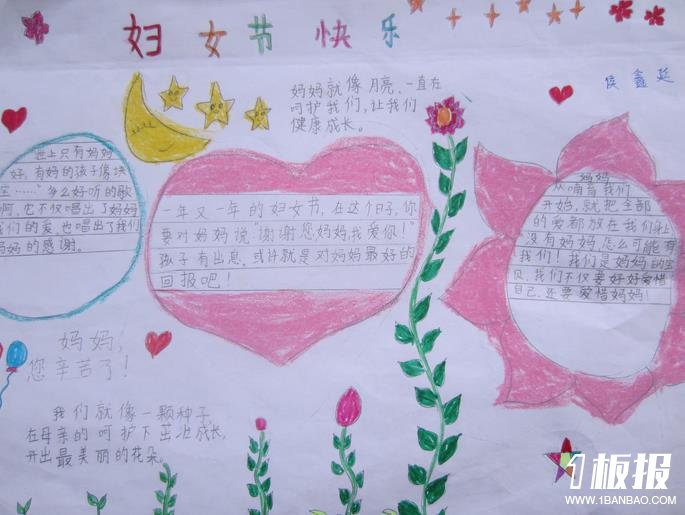 妇女节快乐
妈妈就像月亮，一直在
呵护我们，让我们
健康成长。
侯鑫延
世上只有妈妈
好，有妈的孩子像块
宝……"多么好听的歌
啊，它不仅唱出了妈妈
我们的爱，也唱出了我们
妈妈的感谢。
一年又一年的妇女节，在这个日子，你
要对妈妈说"谢谢您，妈妈，我爱你！"
孩子有出息，或许就是对妈妈最好的
回报吧！
妈妈
从喃育我们
开妈，就把全部
的爱都放在我们身上
没有妈妈，怎么可能有
我们！我们是妈妈的宝
贝，我们不仅要好好爱惜
自己，还要爱惜妈妈！
妈妈，
您辛苦了！
我们就像一颗种子，
在母亲的呵护下茁壮成长，
开出最美丽的花朵。
板报
WWW.1BANBAO.COM